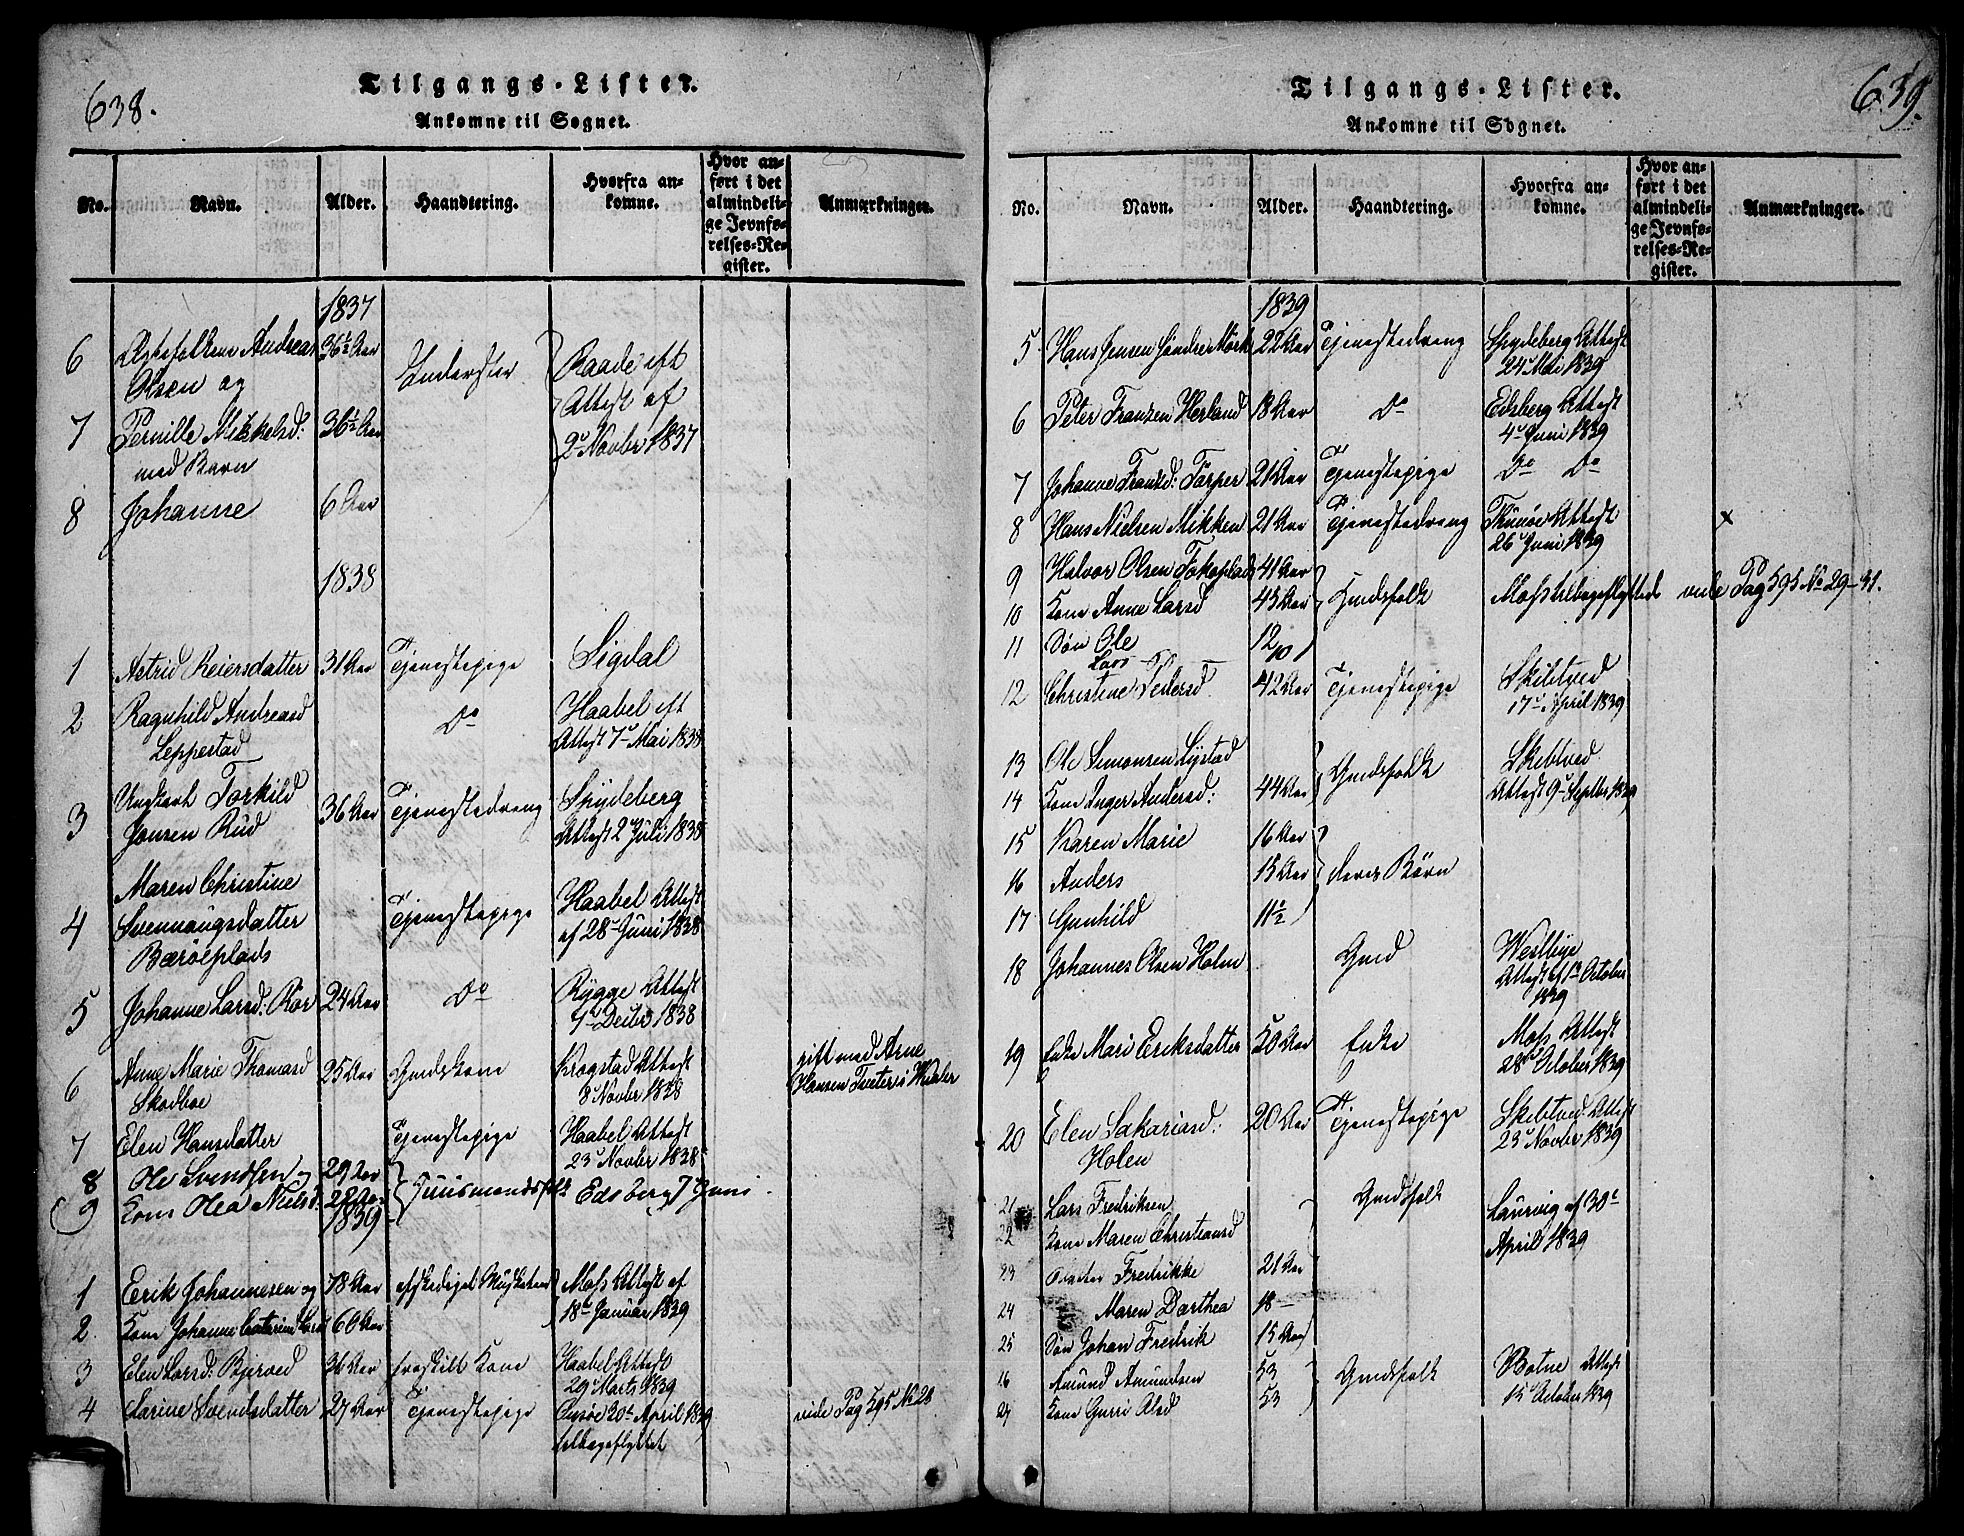 638.
Tilgangs-Lister.
Ankomne til Sognet.
No. Navn. Alder. Haandtering. Hvorfra ankomne. Hvor anført i det almindelige Jevnførelses-Register. Anmærkninger.
1837
6 Andreas 36½ Aar
Olsen og Inderster Raade eft
Attest af
7 Pernille Mikkelsd: 36½ Aar 2 Novbr 1837
med Barn
8 Johanne 6 Aar
1838
1 Astrid Reiersdatter 31 Aar Tjenestepige Sigdal
2 Ragnhild Andreasd Do Haabel eft
Leppestad Attest 7 Mai 1838
3 Ungkarl Torkild 36 Aar Tjenestedreng Spydeberg
Jonsen Rud Attest 2 Juli 1838
Maren Christine
4 Svennaugsdatter Tjenestepige Haabel Attest
Bærøeplads af 28 Juni 1838
5 Johanne Larsd: Rør 24 Aar Do Rygge Attest
1 Decbr 1838
6 Anne Marie Thomasd 25 Aar Gmdskone Krogstad Attest gift med Arne
Skodboe 8 Novbr 1838 Hansen Tveter i Waaler
7 Elen Hansdatter Tjenestepige Haabel Attest
23 Novbr 1838
8 Ole Svendsen og 29 Aar
9 Kone Olea Nielsd. 28 Aar Huusmandsfolk Edsberg 7 Juni
1839
1 Erik Johannesen og 78 Aar afskediget Musketeer Moss Attest af
2. Kone Johanne 60 Aar 18 Januar 1839
3 Elen Larsd: Bjerved 36 Aar fraskilt Kone Haabel Attest
29 Marts 1839
4 Karine Svendsdatter 27 Aar Tjenestepige Onsøe 20 April 1839 vide Pag 595 No 28
tilbageflyttet
639.
Tilgangs-Lister.
Ankomne til Sognet.
No. Navn. Alder. Haandtering. Hvorfra ankomne. Hvor anført i det almindelige Jevnførelses-Register. Anmærkninger.
1839
5 Hans Jensen Søndre Mørk 22 Aar Tjenestedreng Spydeberg Attest
24 Mai 1839
6 Peter Franzen Herland 18 Aar Do Edsberg Attest
4 Juni 1839
7 Johanne Fransd: Torper 21 Aar Tjenestepige Do Do
8 Hans Nielsen Mikken 21 Aar Tjenestedreng Thunøe Attest x
26 Juni 1839
9 Halvor Olsen Fokoplads 41 Aar
10 Kone Anne Larsd 43 Aar Gmdsfolk Moss tilbageflyttede vide Pag 595 No 29-31.
11 Søn Ole 12
Lars 10
12 Christine Pedersd 42 Aar Tjenestepige Skibtved
17 April 1839
13 Ole Simonsen Lystad Skibtved
14 Kone Inger Andersd: 44 Aar Gmdsfolk Attest 9 Septbr 1839
15 Karen Marie 16 Aar
16 Anders 13 Aar deres Børn
17 Gunhild 11½
18 Johannes Olsen Holm Gmd Westbye
Attest af 1 October
1839
19 Enke Mari Eriksdatter 50 Aar Enke Moss Attest
28 October 1839
20 Elen Sakariasd: 20 Aar Tjenestepige Skibtved Attest
Holen 23 Novbr 1839
21 Lars Fredriksen Gmdsfolk Laurvig af 30
22 Kone Maren Christiansd April 1839
23 Datter Fredrikke 21 Aar
24 Maren Dorthea 18 —
25 Søn Johan Fredrik 15 Aar
16 Amund Amundsen 53 Gmdsfolk Botne Attest
27 Kone Gurri Olsd 53 15 October 1839